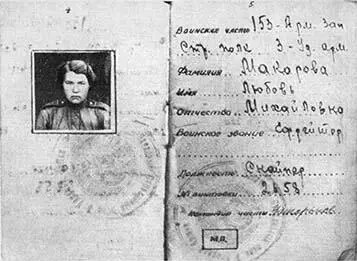 4
5
Воинская часть 153-Арм. Зап
Стр. полк 3-Уд. арм.
Фамилия Макарова
Имя Любовь
Отчество Михайловна
Воинское звание Ефрейтор
Должность Снайпер
№ винтовки 2658
Командир части
М.П.